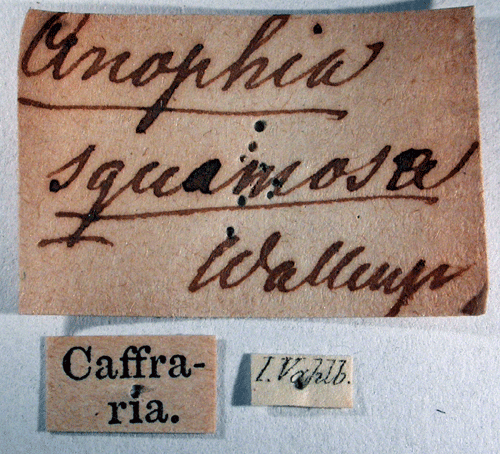 Anophia
squamosa
Wallengr
Caffra-
ria.
I. Vahlb.